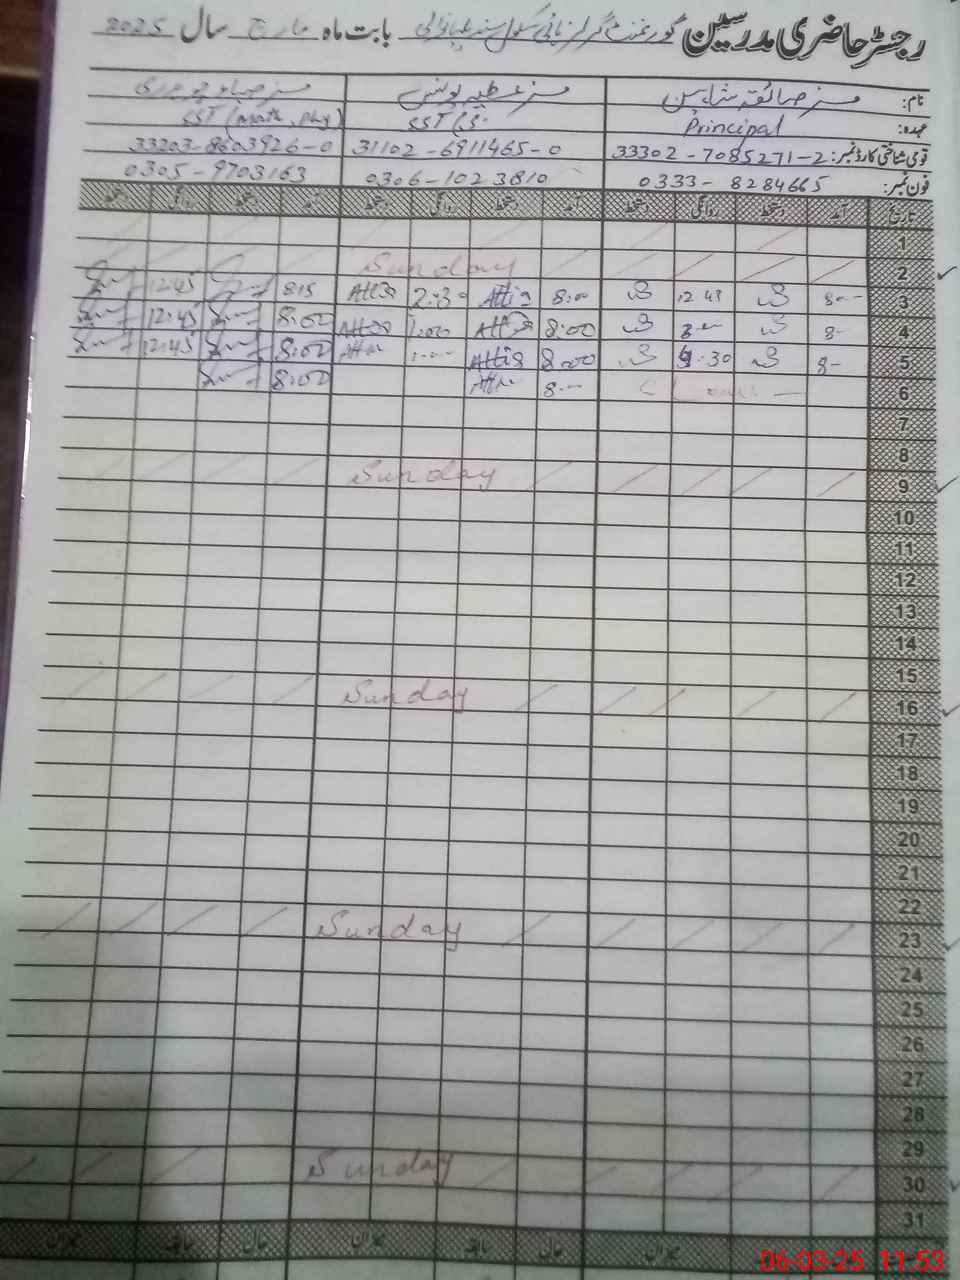 رجسٹر حاضری مدرسین گورنمنٹ گرلز ہائی سکول بابت ماہ مارچ سال 2025
نام: مسز صائقہ شاہین مسز عطیہ یونس مسز صباء چوہدری
عہدہ: Principal SST SST (Math, Phy)
قومی شناختی کارڈ نمبر: 33302-7085271-2 31102-6911465-0 33203-8603926-0
فون نمبر: 0333-8284665 0306-1023810 0305-9703163
تاریخ آمد دستخط روانگی دستخط آمد دستخط روانگی دستخط آمد دستخط روانگی دستخط
1
2 Sunday
3 8:00 12:45 8:00 Attia 2:30 Attia 8:15 12:45
4 8:00 Attia 1:00 Attia 8:00 12:45
5 8:00 Attia 8:00 12:45
6 Leave 8:00 8:00
7
8
9 Sunday
10
11
12
13
14
15
16 Sunday
17
18
19
20
21
22
23 Sunday
24
25
26
27
28
29
30 Sunday
31
میزان حال سابقہ میزان حال سابقہ میزان
06-03-25 11:53